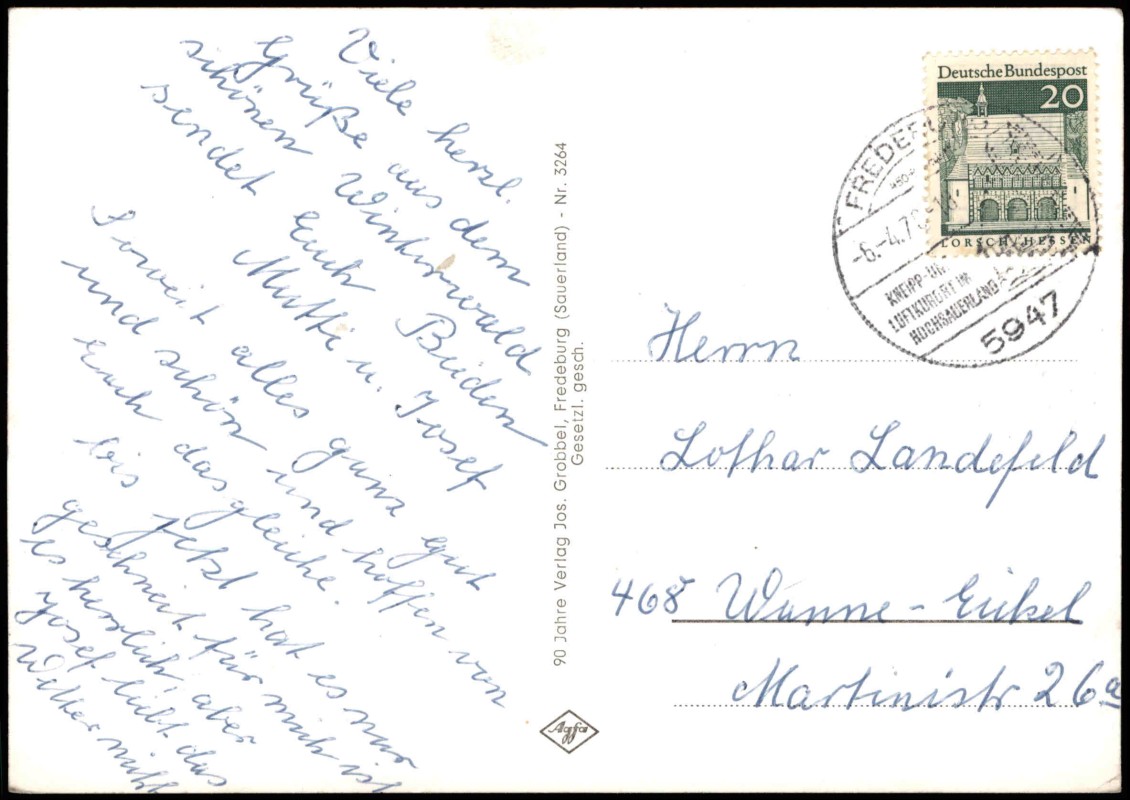 Viele herzl.
Grüße aus dem
schönen Winterwald
sendet Euch Beiden
Mutti u. Josef
Soweit alles ganz gut
und schön und hoffen von
Euch dasgleiche.
bis jetzt hat es nur
geschneit für mich ist
es herrlich, aber
Josef liebt das
Wetter nicht
90 Jahre Verlag Jos. Grobbel, Fredeburg (Sauerland) - Nr. 3264
Gesetzl. gesch.
Agfa
Deutsche Bundespost
20
LORSCH/HESSEN
-6.-4.7
KNEIPP-UN
LUFTKURORT IM
HOCHSAUERLAND
5947
Herrn
Lothar Landefeld
468 Wanne-Eickel
Martinistr 26a